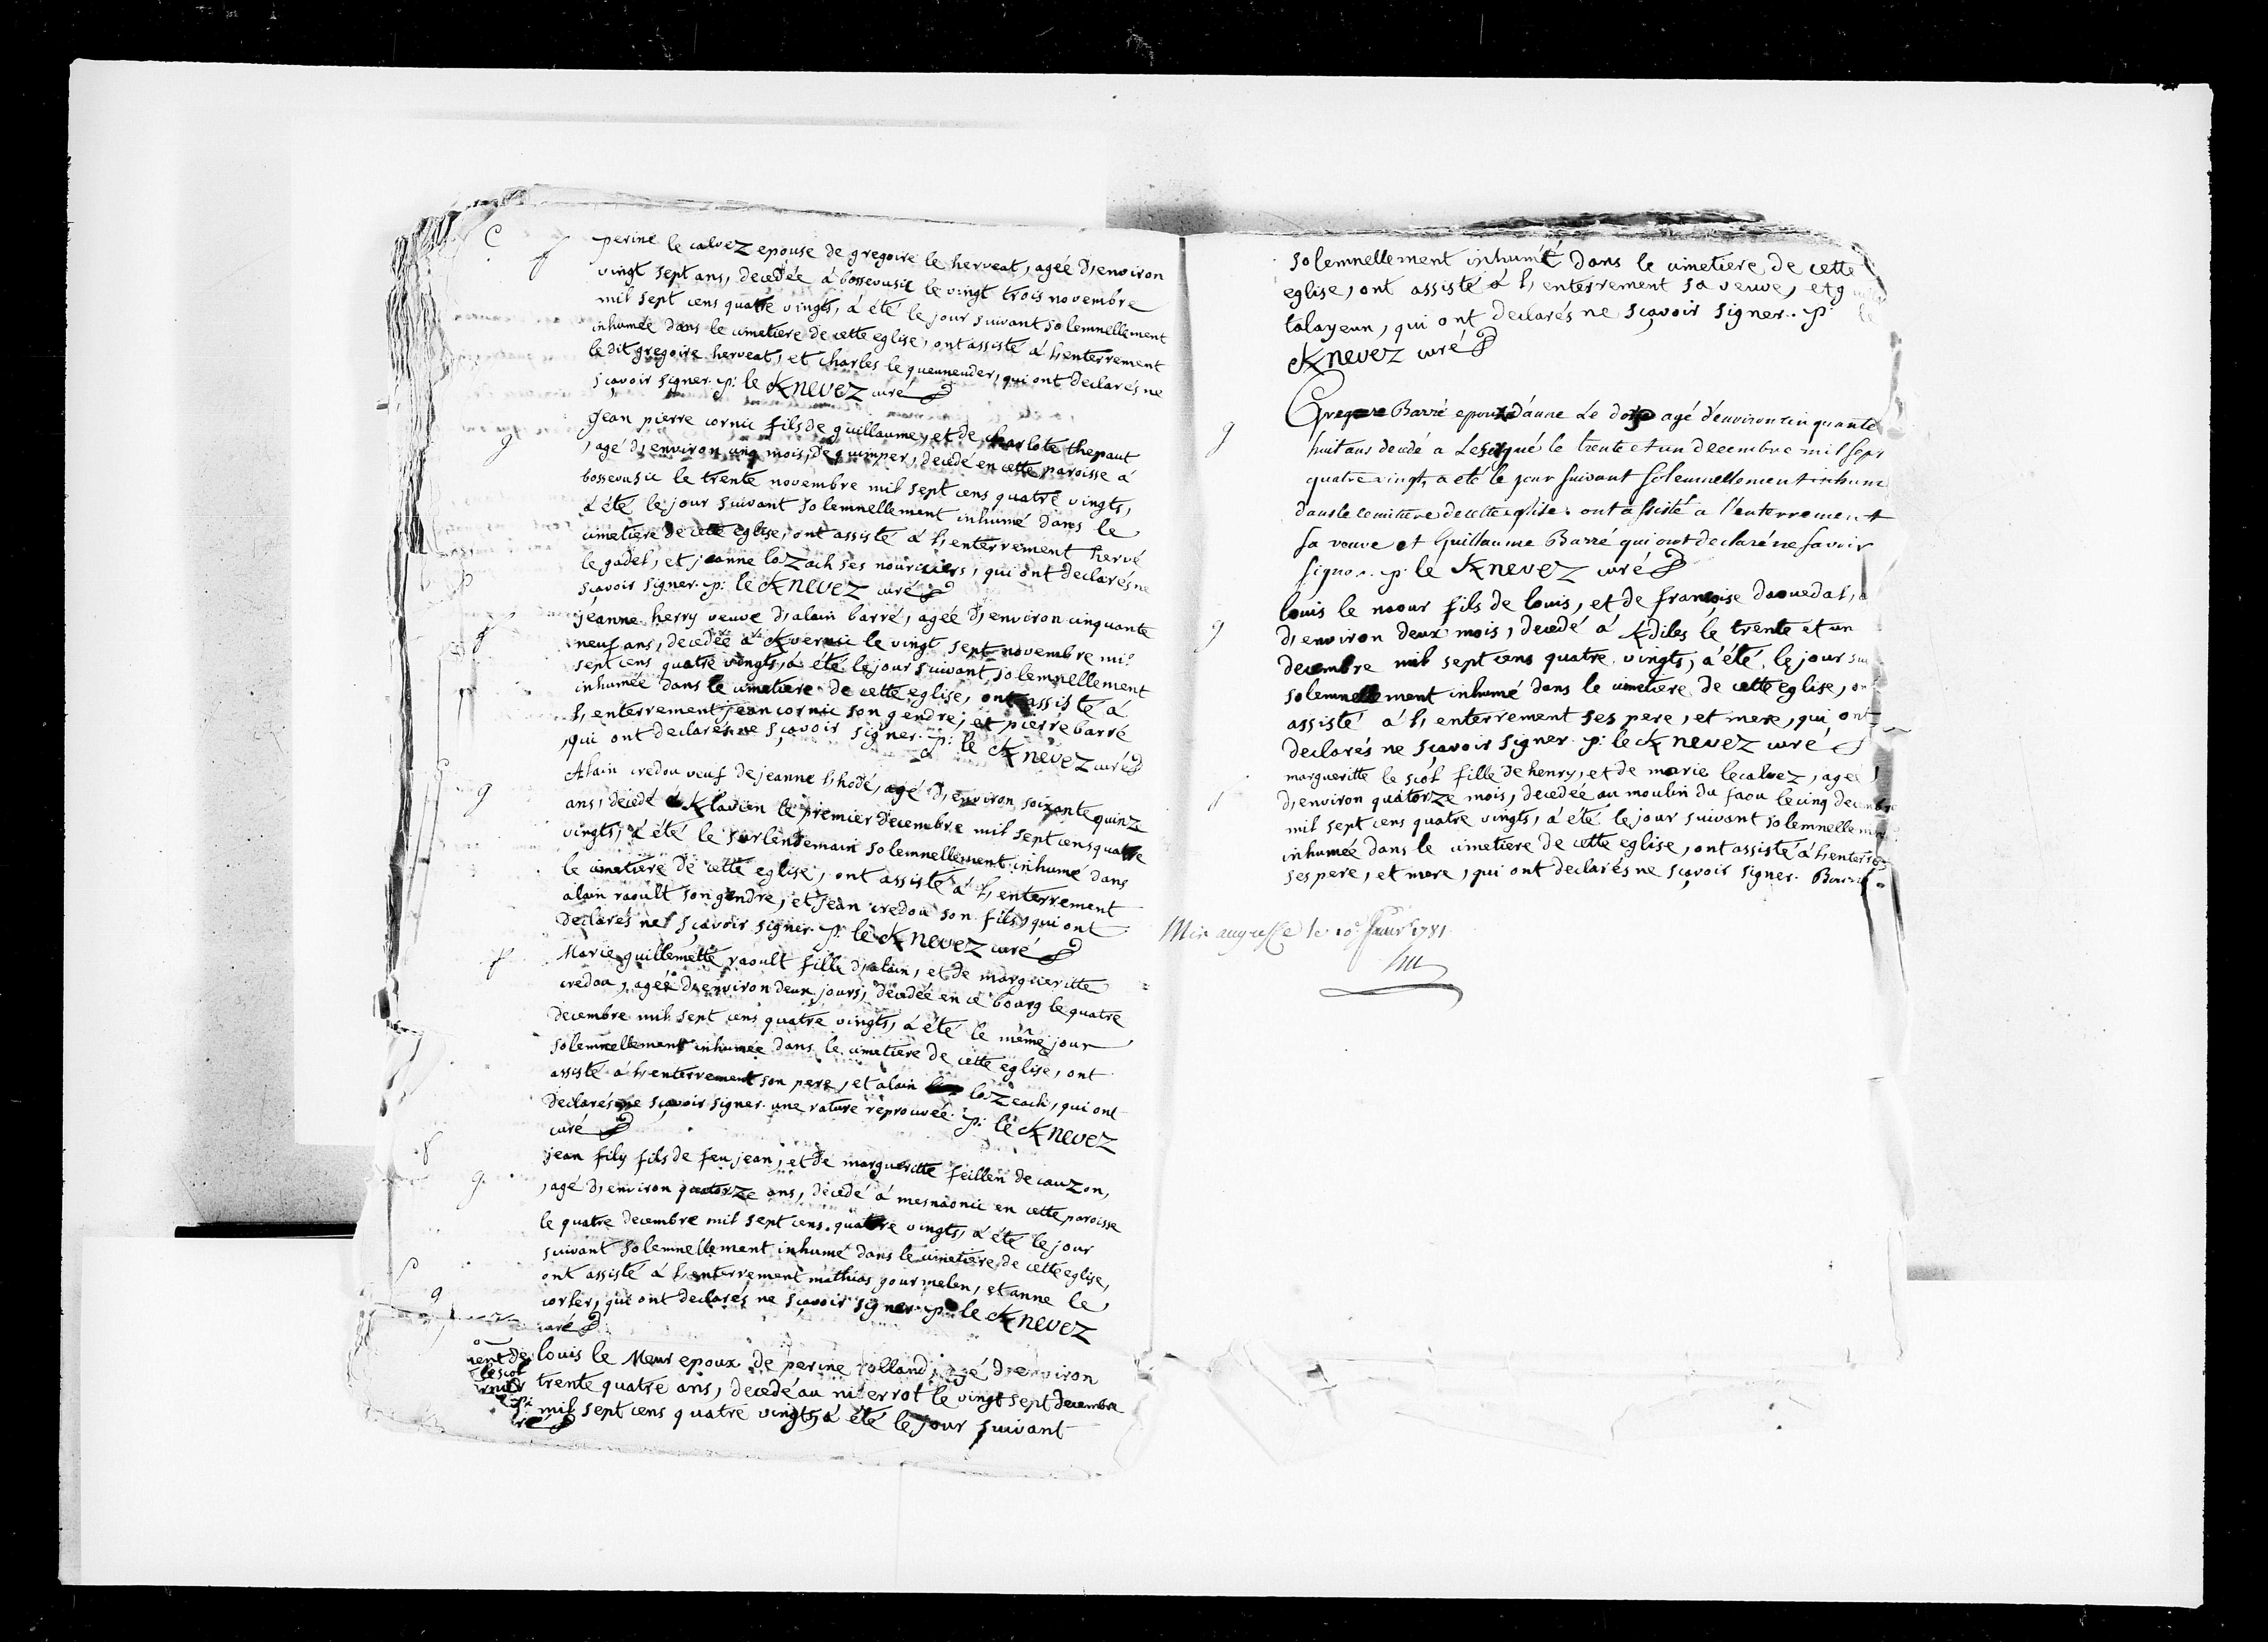 perine le calvez epouse de gregoire le herveat, agée d'environ
vingt sept ans, decedée à bossevusic le vingt trois novembre
mil sept cens quatre vingts, à été le jour suivant solemnellement
inhumée dans le cimetiere de cette eglise, ont assisté à l'enterrement
le dit gregoire herveat, et charles le queuneuder, qui ont declarés ne
sçavoir signer. p: le Knevez curé
g
jean pierre cornic fils de guillaume, et de charlote thepaut
, agé d'environ cinq mois, de quimper, decedé en cette paroisse à
bossevusic le trente novembre mil sept cens quatre vingts,
à été le jour suivant solemnellement inhumé dans le
cimetiere de cette eglise, ont assisté à l'enterrement hervé
le gadel, et jeanne lozach ses nouriciers, qui ont declarés ne
sçavoir signer. p: le Knevez curé
f
jeanne herry veuve d'alain barré, agée d'environ cinquante
neuf ans, decedée à Kvernic le vingt sept novembre mil
sept cens quatre vingts, à été le jour suivant solemnellement
inhumée dans le cimetiere de cette eglise, ont assisté à
l'enterrement jean cornic son gendre, et pierre barré
, qui ont declarés ne sçavoir signer. p: le Knevez curé
g
Alain credou veuf de jeanne l'hodé, agé d'environ soixante quinze
ans, decedé à Klavien le premier decembre mil sept cens quatre
vingts, à été le surlendemain solemnellement inhumé dans
le cimetiere de cette eglise, ont assisté à l'enterrement
alain raoult son gendre, et jean credou son fils, qui ont
declarés ne sçavoir signer. p: le Knevez curé
f
Marie guillemette raoult fille d'alain, et de margueritte
credou, agée d'environ deux jours, decedée en ce bourg le quatre
decembre mil sept cens quatre vingts, à été le même jour
solemnellement inhumée dans le cimetiere de cette eglise, ont
assisté à l'enterrement son pere, et alain lozeach, qui ont
declarés ne sçavoir signer. une rature reprouvée. p: le Knevez
curé
g.
jean fily fils de feu jean, et de margueritte feillen de cauzon,
, agé d'environ quatorze ans, decedé à mesnaonic en cette paroisse
le quatre decembre mil sept cens quatre vingts, à été le jour
suivant solemnellement inhumé dans le cimetiere de cette eglise,
ont assisté à l'enterrement mathias gourmelen, et anne le
corler, qui ont declarés ne sçavoir signer. p: le Knevez
curé
g
louis le Meur epoux de perine rolland, agé d'environ
trente quatre ans, decedé au niverrot le vingt sept decembre
mil sept cens quatre vingts, à été le jour suivant
solemnellement inhumé dans le cimetiere de cette
eglise, ont assisté à l'enterrement sa veuve, et g
talayeun, qui ont declarés ne sçavoir signer. p: le
Knevez curé
g
Gregoire Barré epoux d'anne Le agé d'environ cinquante
huit ans decedé a le trente et un decembre mil sept
quatre vingt, a eté le jour suivant solemnellement inhume
dans le cemitiere de cette eglise. ont assisté a l'enterrement
sa veuve et Guillaume Barré qui ont declaré ne savoir
signer. p. le Knevez curé
g
louis le naour fils de louis, et de françoise daouedal, a
d'environ deux mois, decedé à Kdiles le trente et un
decembre mil sept cens quatre vingts, à été le jour sui
solemnellement inhumé dans le cimetiere de cette eglise, on
assisté à l'enterrement ses pere, et mere, qui ont
declarés ne sçavoir signer. p: le Knevez curé
margueritte le scol fille de henry, et de marie le calvez, agee
d'environ quatorze mois, decedée au moulin du faou le cinq decembre
mil sept cens quatre vingts, à été le jour suivant solemnellemen
inhumée dans le cimetiere de cette eglise, ont assisté à l'enterre
ses pere, et mere, qui ont declarés ne sçavoir signer.
Mis au greffe le 10e janvr 1781